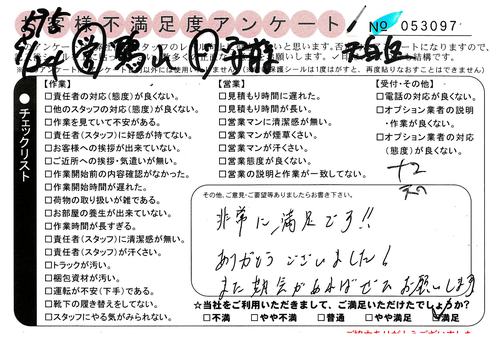 お客様不満足度アンケート
No 053097
575
9/29
【作業】
□責任者の対応(態度)が良くない。
□他のスタッフの対応(態度)が良くない。
□作業を見ていて不安がある。
□責任者(スタッフ)に好感が持てない。
□お客様への挨拶が出来ていない。
□ご近所への挨拶・気遣いが無い。
□作業開始前の内容確認がなかった。
□作業開始時間が遅れた。
□荷物の取り扱いが雑である。
□お部屋の養生が出来ていない。
□作業時間が長すぎる。
□責任者(スタッフ)に清潔感が無い。
□責任者(スタッフ)が汗くさい。
□トラックが汚い。
□梱包資材が汚い。
□運転が不安(下手)である。
□靴下の履き替えをしてない。
□スタッフにやる気がみられない。
【営業】
□見積もり時間に遅れた。
□見積もり時間が長い。
□営業マンに清潔感が無い。
□営業マンが煙草くさい。
□営業マンが汗くさい。
□営業態度が良くない。
□営業の説明と作業が一致してない。
【受付・その他】
□電話の対応が良くない。
□オプション業者の説明
・作業が良くない。
□オプション業者の対応
(態度)が良くない。
●チェックリスト
その他、ご意見・ご要望等ありましたらお書き下さい。
非常に満足です!!
ありがとうございました!
また機会があればぜひお願いします
☆当社をご利用いただきまして、ご満足いただけたでしょうか?
□不満 □やや不満 □普通 □やや満足 □満足